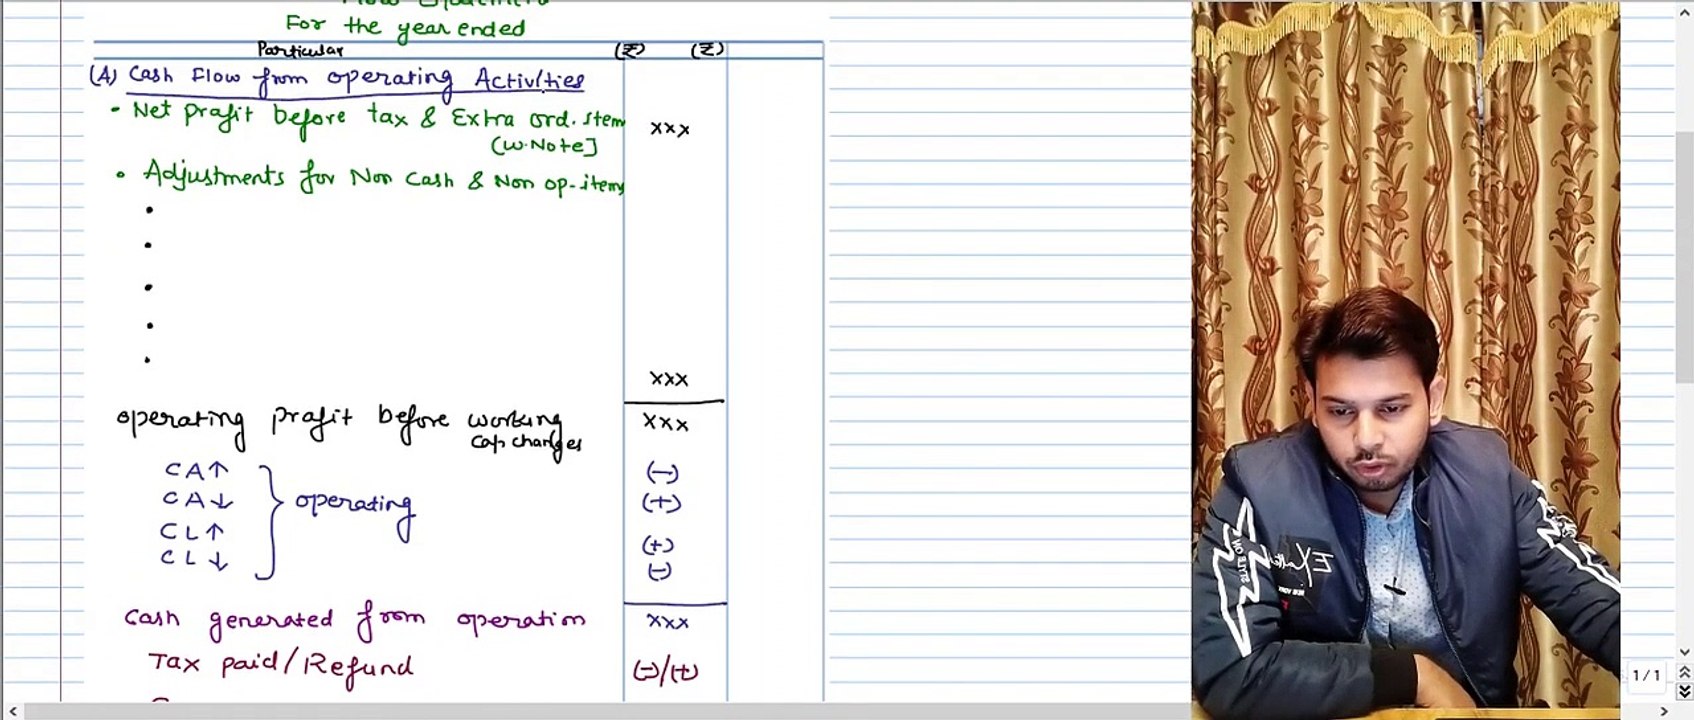 For the year ended
Particular (₹) (₹)
(A) Cash Flow from operating Activities
• Net Profit before tax & Extra ord. item xxx
(W.Note]
• Adjustments for Non Cash & Non op-items
xxx
operating profit before working xxx
cap changes
CA↑ (-)
CA↓ (+)
operating
CL↑ (+)
CL↓ (-)
Cash generated from operation xxx
Tax paid/Refund (-)/(+)
1/1